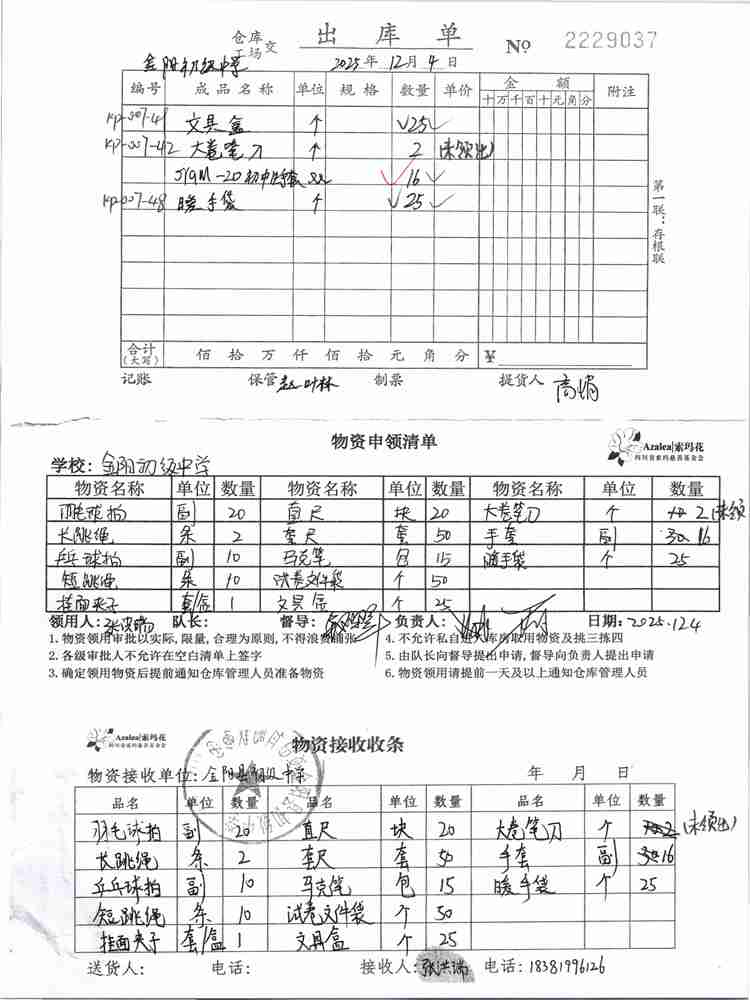 仓库
工场 交 出库单 № 2229037
金阳初级中学 2025年 12月 4日
编号 成品名称 单位 规格 数量 单价 金额 附注
十万千百十元角分
kp-007-41 文具盒 个 25
kp-007-42 大卷笔刀 个 2 (未领出)
16
kp-007-48 暖手袋 个 25
第一联：存根联
合计(大写) 佰拾万仟佰拾元角分 ¥
记账 保管 赵叶林 制票 提货人 高娟
物资申领清单
Azalea|索玛花
四川省索玛慈善基金会
学校：金阳初级中学
物资名称 单位 数量 物资名称 单位 数量 物资名称 单位 数量
羽毛球拍 副 20 直尺 块 20 大卷笔刀 个 2 (未领
长跳绳 条 2 套尺 套 50 手套 副 30 16
乒乓球拍 副 10 马克笔 包 15 暖手袋 个 25
短跳绳 条 10 试卷文件袋 个 50
挂面夹子 套/盒 1 文具盒 个 25
领用人：张洪瑞 队长： 督导： 负责人： 日期：2025.12.4
1.物资领用审批以实际,限量,合理为原则,不得浪费铺张 4.不允许私自进入库房取用物资及挑三拣四
2.各级审批人不允许在空白清单上签字 5.由队长向督导提出申请,督导向负责人提出申请
3.确定领用物资后提前通知仓库管理人员准备物资 6.物资领用请提前一天及以上通知仓库管理人员
Azalea|索玛花
四川省索玛慈善基金会
物资接收收条
物资接收单位：金阳县初级中学 年 月 日
品名 单位 数量 品名 单位 数量 品名 单位 数量
羽毛球拍 副 20 直尺 块 20 大卷笔刀 个 2 (未领出)
长跳绳 条 2 套尺 套 50 手套 副 30 16
乒乓球拍 副 10 马克笔 包 15 暖手袋 个 25
短跳绳 条 10 试卷文件袋 个 50
挂面夹子 套/盒 1 文具盒 个 25
送货人： 电话： 接收人：张洪瑞 电话：18381996126